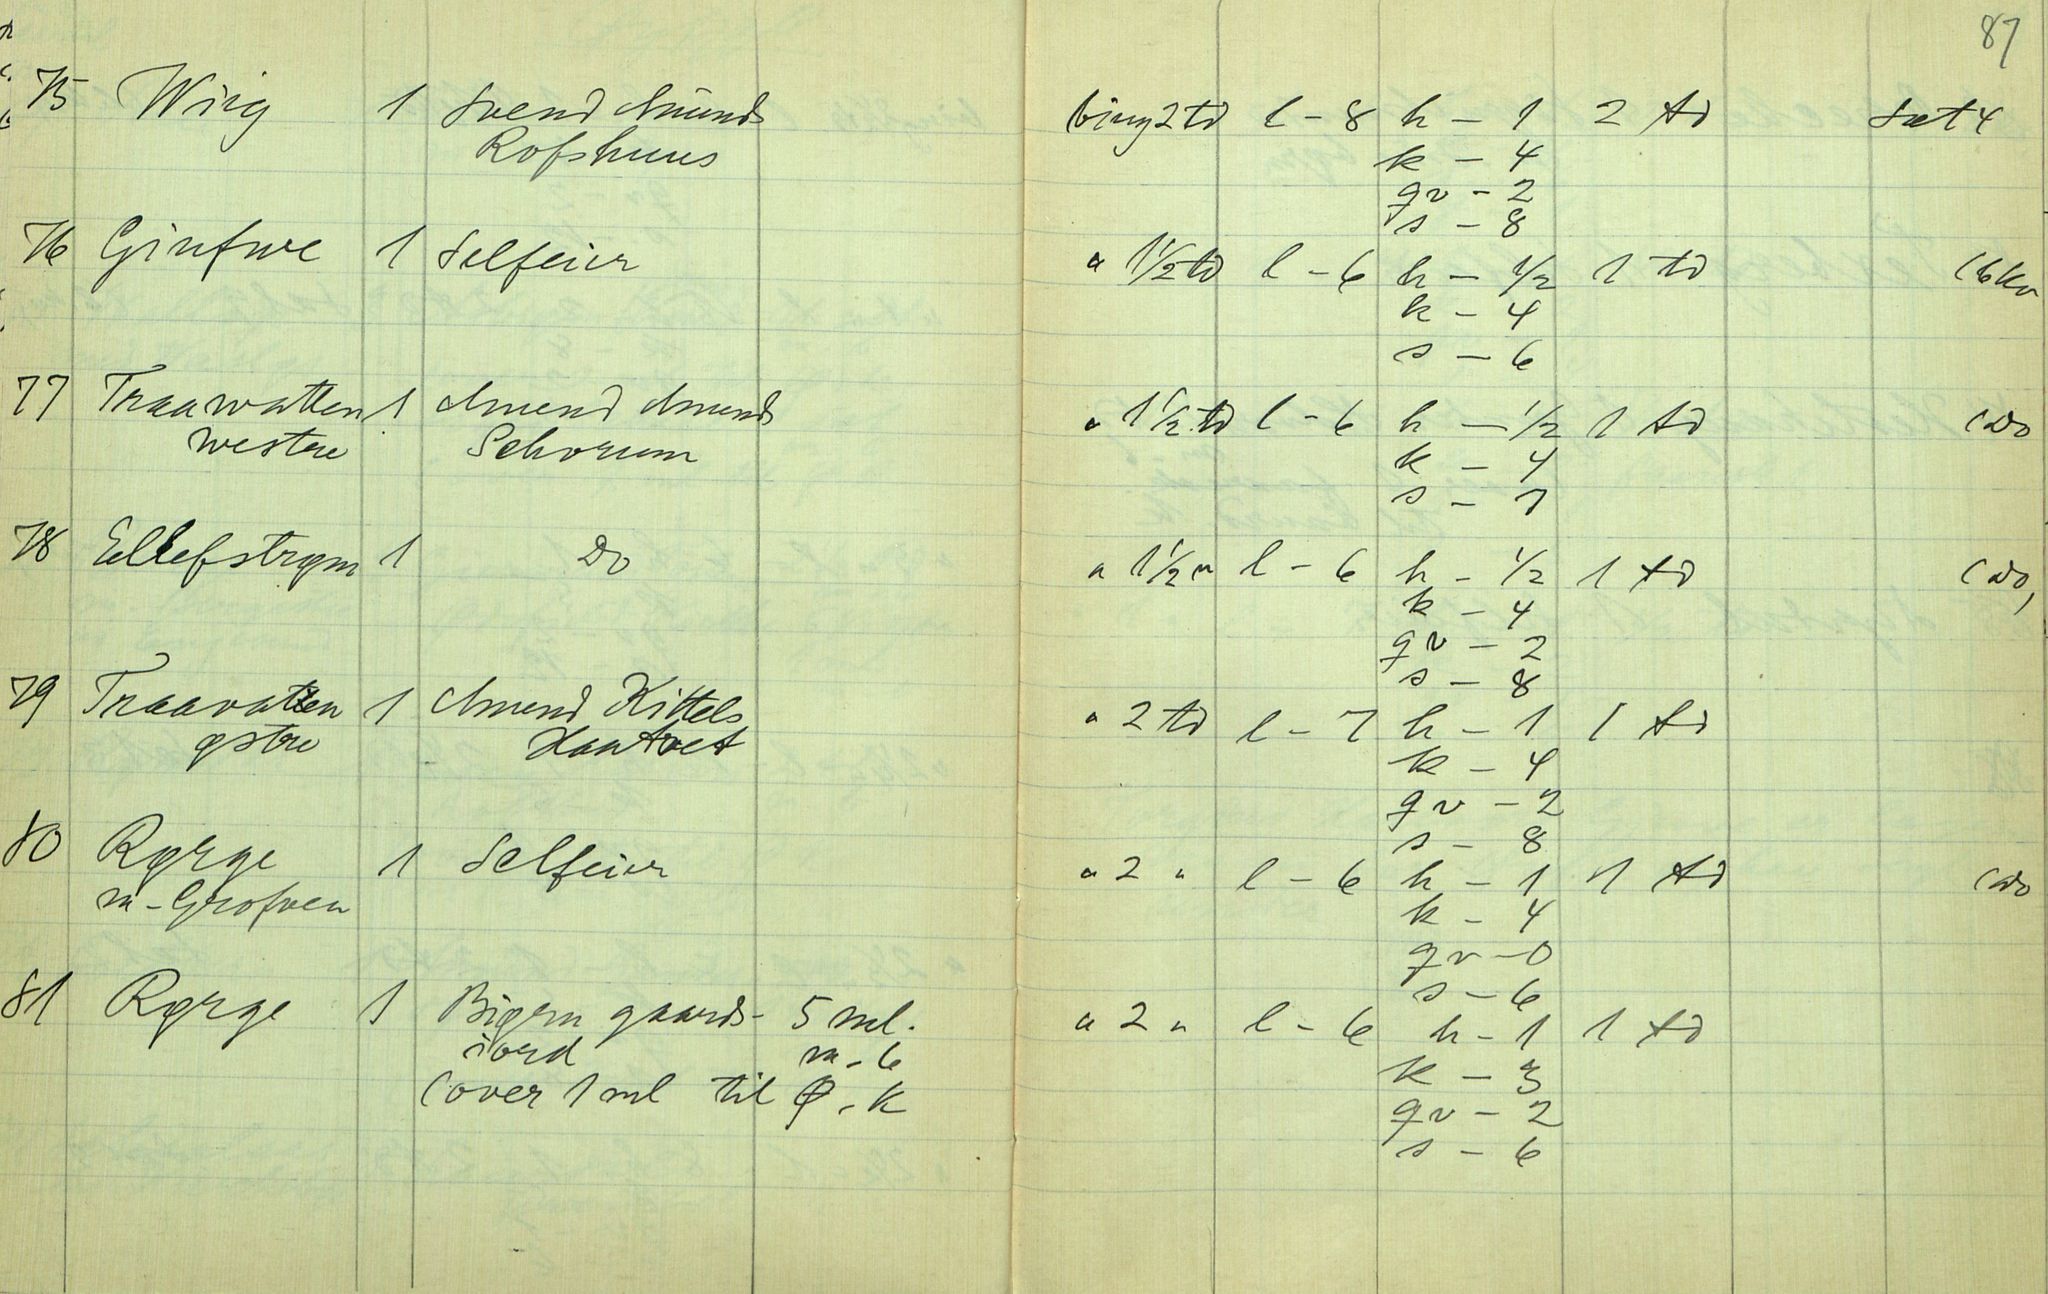 87
75 Wiig 1 Svend Amunds bing 2 td l - 8 h - 1 2 td Sat 4
Rofshuus k - 4
qv - 2
s - 8
76 Giufwe 1 Selfeier " 1 1/2 td l - 6 h - 1/2 1 td (6 kv
k - 4
s - 6
77 Traawatten 1 Amend Amends " 1 1/2 td l - 6 h - 1/2 1 td (Do
westre Schorum k - 4
s - 7
78 Ellefstrøm 1 Do " 1 1/2 " l - 6 h - 1/2 1 td (Do,
k - 4
qv - 2
s - 8
79 Traavatten 1 Amend Kittels " 2 td l - 7 h - 1 1 td
østre Haatvet k - 4
qv - 2
s - 8
80 Rørge 1 Selfeier " 2 " l - 6 h - 1 1 td (Do
m - Grofven k - 4
qv - 0
s - 6
81 Rørge 1 Biørn gaards- 5 ml. " 2 " l - 6 h - 1 1 td
iord m - 6 k - 3
(over 1 ml til Ø. K qv - 2
s - 6